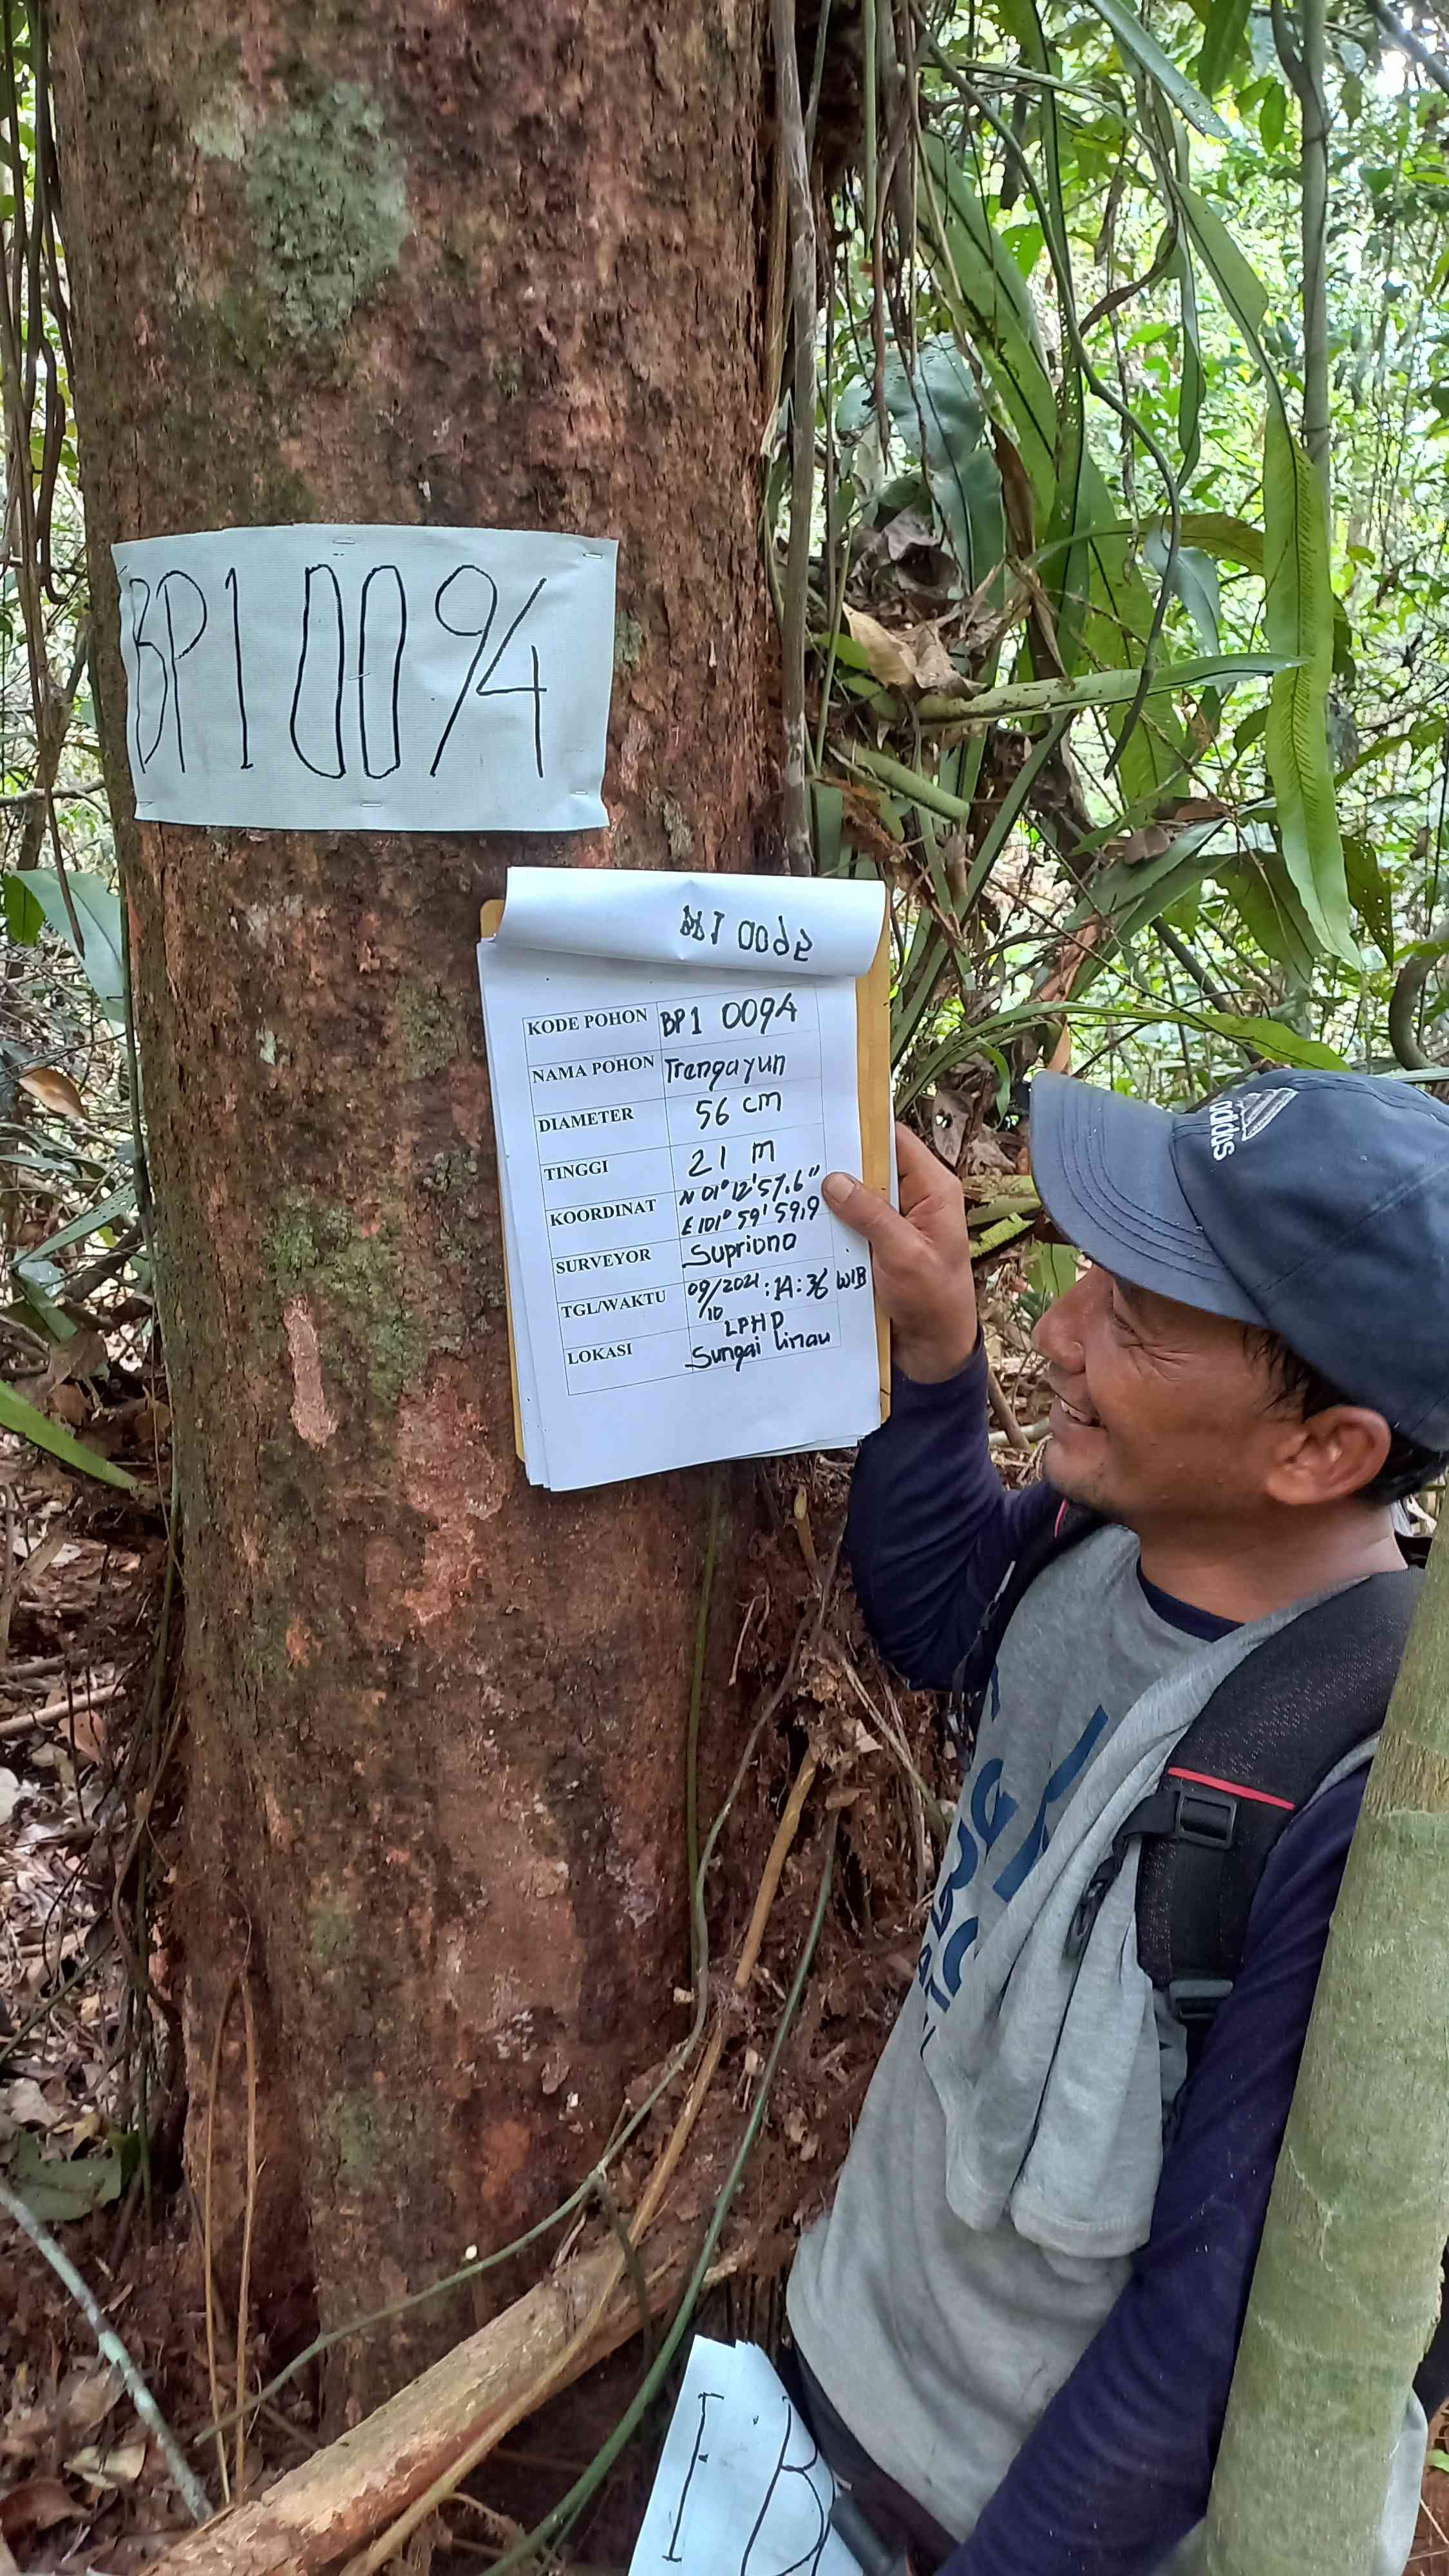 BP1 0094
KODE POHON BP1 0094
NAMA POHON Trengayun
DIAMETER 56 cm
TINGGI 21 m
KOORDINAT N 01° 12' 57,6"
E 101° 59' 59,9
SURVEYOR Supriono
TGL/WAKTU 09/2021 : 14 : 36 WIB
/10
LOKASI LPHD
Sungai linau
adidas